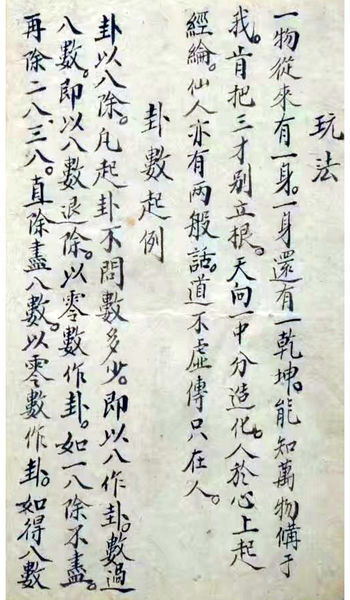 玩法
一物從來有一身。一身還有一乾坤。能知萬物備于
我。肯把三才別立根。天向一中分造化。人於心上起
經綸。仙人亦有兩般話。道不虛傳只在人。
卦數起例
卦以八除。凡起卦不問數多少。即以八作卦。數過
八數。即以八數退除。以零數作卦。如一八除不盡。
再除二八、三八。直除盡八數。以零數作卦。如得八數